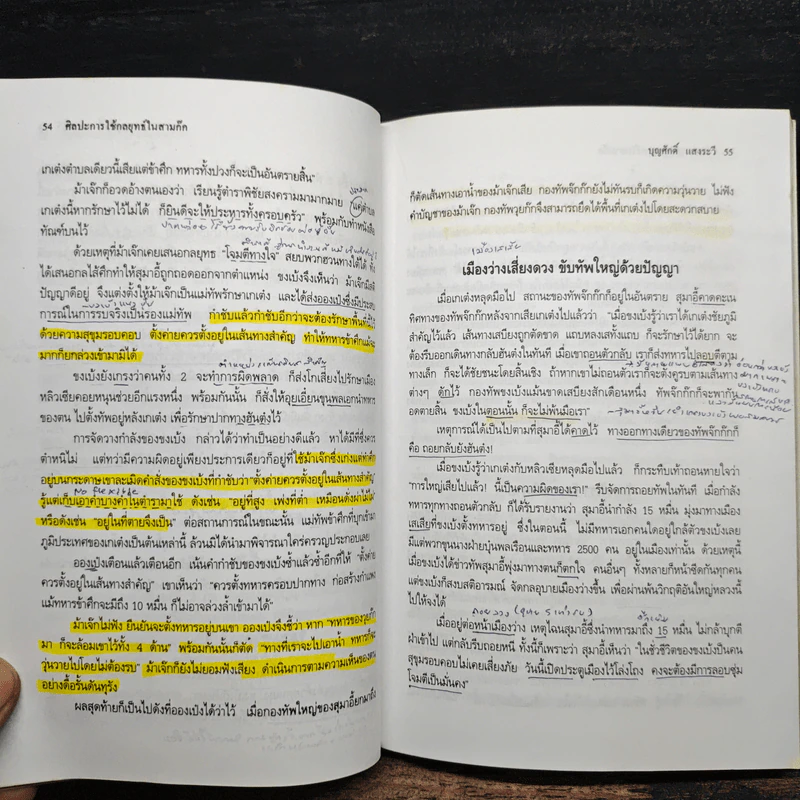 54 ศิลปะการใช้กลยุทธ์ในสามก๊ก
เกเต๋งตำบลเดียวนี้เสียแต่ข้าศึก ทหารทั้งปวงก็จะเป็นอันตรายสิ้น"
ม้าเจ๊กก็อวดอ้างตนเองว่า เรียนรู้ตำราพิชัยสงครามมามากมาย แค่ตำบล
เกเต๋งนี้หากรักษาไว้ไม่ได้ ก็ยินดีจะให้ประหารทั้งครอบครัว" พร้อมกับทำหนังสือ
ทัณฑ์บนไว้
ด้วยเหตุที่ม้าเจ๊กเคยเสนอกลยุทธ "โจมตีทางใจ" สยบพวกฮวนทางใต้ได้ ทั้ง
ได้เสนอกลไส้ศึกทำให้สุมาอี้ถูกถอดออกจากตำแหน่ง ขงเบ้งจึงเห็นว่า ม้าเจ๊กมีสติ
ปัญญาดีอยู่ จึงแต่งตั้งให้ม้าเจ๊กเป็นแม่ทัพรักษาเกเต๋ง และได้ส่งอองเป๋งซึ่งมีประสบ
การณ์ในการรบจริงเป็นรองแม่ทัพ กำชับแล้วกำชับอีกว่าจะต้องรักษาพื้นที่นี้ไว้
ด้วยความสุขุมรอบคอบ ตั้งค่ายควรตั้งอยู่ในเส้นทางสำคัญ ทำให้ทหารข้าศึกแม้จะ
มากก็ยกล่วงเข้ามามิได้
ขงเบ้งยังเกรงว่าคนทั้ง 2 จะทำการผิดพลาด ก็ส่งโกเสียงไปรักษาเมือง
หลิวเซียคอยหนุนช่วยอีกแรงหนึ่ง พร้อมกันนั้น ก็สั่งให้อุยเอี๋ยนขุนพลเอกนำทหาร
ของตน ไปตั้งทัพอยู่หลังเกเต๋ง เพื่อรักษาปากทางฮันต๋งไว้
การจัดวางกำลังของขงเบ้ง กล่าวได้ว่าทำเป็นอย่างดีแล้ว หาได้มีที่ซึ่งควร
ตำหนิไม่ แต่ทว่ามีความผิดอยู่เพียงประการเดียวก็อยู่ที่ใช้ม้าเจ๊กซึ่งเก่งแต่ทำศึก
อยู่บนกระดาษเขาละเมิดคำสั่งของขงเบ้งที่กำชับว่า"ตั้งค่ายควรตั้งอยู่ในเส้นทางสำคัญ"
No flexible
รู้แต่เก็บเอาคำบางคำในตำรามาใช้ ดังเช่น "อยู่ที่สูง เพ่งที่ต่ำ เหมือนดังผ่าไม้ไผ่"
หรือดังเช่น "อยู่ในที่ตายจึงเป็น" ต่อสถานการณ์ในขณะนั้น แม่ทัพข้าศึกที่บุกเข้ามา
ภูมิประเทศของเกเต๋งเป็นต้นเหล่านี้ ล้วนมิได้นำมาพิจารณาใคร่ครวญประกอบเลย
อองเป๋งเตือนแล้วเตือนอีก เน้นคำกำชับของขงเบ้งซ้ำแล้วซ้ำอีกที่ให้ "ตั้งค่าย
ควรตั้งอยู่ในเส้นทางสำคัญ" เขาเห็นว่า "ควรตั้งทหารครอบปากทาง ก่อสร้างกำแพง
แม้ทหารข้าศึกจะมีถึง 10 หมื่น ก็ไม่อาจล่วงล้ำเข้ามาได้"
ม้าเจ๊กไม่ฟัง ยืนยันจะตั้งทหารอยู่บนเขา อองเป๋งจึงชี้ว่า หาก "ทหารของวุยก๊ก
มา ก็จะล้อมเขาไว้ทั้ง 4 ด้าน" พร้อมกันนั้นก็ตัด "ทางที่เราจะไปเอาน้ำ ทหารก็จะ
วุ่นวายไปโดยไม่ต้องรบ" ม้าเจ๊กก็ยังไม่ยอมฟังเสียง ดำเนินการตามความเห็นของตน
อย่างดื้อรั้นดันทุรัง
ผลสุดท้ายก็เป็นไปดังที่อองเป๋งได้ว่าไว้ เมื่อกองทัพใหญ่ของสุมาอี้ยกมาถึง
บุญศักดิ์ แสงระวี 55
ก็ตัดเส้นทางเอาน้ำของม้าเจ๊กเสีย กองทัพจ๊กก๊กยังไม่ทันรบก็เกิดความวุ่นวาย ไม่ฟัง
คำบัญชาของม้าเจ๊ก กองทัพวุยก๊กจึงสามารถยึดได้พื้นที่เกเต๋งไปโดยสะดวกสบาย
เมืองเสเสีย
เมืองว่างเสี่ยงดวง ขับทัพใหญ่ด้วยปัญญา
เมื่อเกเต๋งหลุดมือไป สถานะของทัพจ๊กก๊กก็อยู่ในอันตราย สุมาอี้คาดคะเน
ทิศทางของทัพจ๊กก๊กหลังจากเสียเกเต๋งไปแล้วว่า "เมื่อขงเบ้งรู้ว่าเราได้เกเต๋งชัยภูมิ
สำคัญไว้แล้ว เส้นทางเสบียงก็ถูกตัดขาด แถบหลงเสทั้งแถบ ก็จะรักษาไว้ได้ยาก จะ
ต้องรีบออกเดินทางกลับฮันต๋งในทันที เมื่อเขาถอนตัวกลับ เราก็ส่งทหารไปลอบตีตาม
ทางเล็ก ก็จะได้ชัยชนะโดยสิ้นเชิง ถ้าหากเขาไม่ถอนตัวเราก็จะตั้งครบตามเส้นทาง
ต่างๆ ดักไว้ กองทัพขงเบ้งแม้นขาดเสบียงสักเดือนหนึ่ง ทหารจ๊กก๊กก็จะพากัน
อดตายสิ้น ขงเบ้งในตอนนั้น ก็จะไม่พ้นมือเรา"
เหตุการณ์ได้เป็นไปตามที่สุมาอี้ได้คาดไว้ ทางออกทางเดียวของทัพจ๊กก๊กก็
คือ ถอยกลับยังฮันต๋ง!
เมื่อขงเบ้งรู้ว่าเกเต๋งกับหลิวเซียหลุดมือไปแล้ว ก็กระทืบเท้าถอนหายใจว่า
"การใหญ่เสียไปแล้ว! นี้เป็นความผิดของเรา!" รีบจัดการถอยทัพในทันที เมื่อกำลัง
ทหารทุกทางถอนตัวกลับ ก็ได้รับรายงานว่า สุมาอี้นำกำลัง 15 หมื่น มุ่งมาทางเมือง
เสเสียที่ขงเบ้งตั้งทหารอยู่ ซึ่งในตอนนี้ ไม่มีทหารเอกคนใดอยู่ใกล้ตัวขงเบ้งเลย
มีแต่พวกขุนนางฝ่ายบุ๋นพลเรือนและทหาร 2500 คน อยู่ในเมืองเท่านั้น ด้วยเหตุนี้
เมื่อขงเบ้งได้ข่าวทัพสุมาอี้พุ่งมาทางตนก็ตกใจ คนอื่นๆ ทั้งหลายก็หน้าซีดกันทุกคน
แต่ขงเบ้งก็สงบสติอารมณ์ จัดกลอุบายเมืองว่างขึ้น เพื่อผ่านพ้นวิกฤติอันใหญ่หลวงนี้
ไปให้จงได้
เมื่ออยู่ต่อหน้าเมืองว่าง เหตุไฉนสุมาอี้ซึ่งนำทหารมาถึง 15 หมื่น ไม่กล้าบุกตี
ฝ่าเข้าไป แต่กลับรีบถอยหนี ทั้งนี้ก็เพราะว่า สุมาอี้เห็นว่า "ในชั่วชีวิตของขงเบ้งเป็นคน
สุขุมรอบคอบไม่เคยเสี่ยงภัย วันนี้เปิดประตูเมืองไว้โล่งโถง คงจะต้องมีการลอบซุ่ม
โจมตีเป็นมั่นคง"